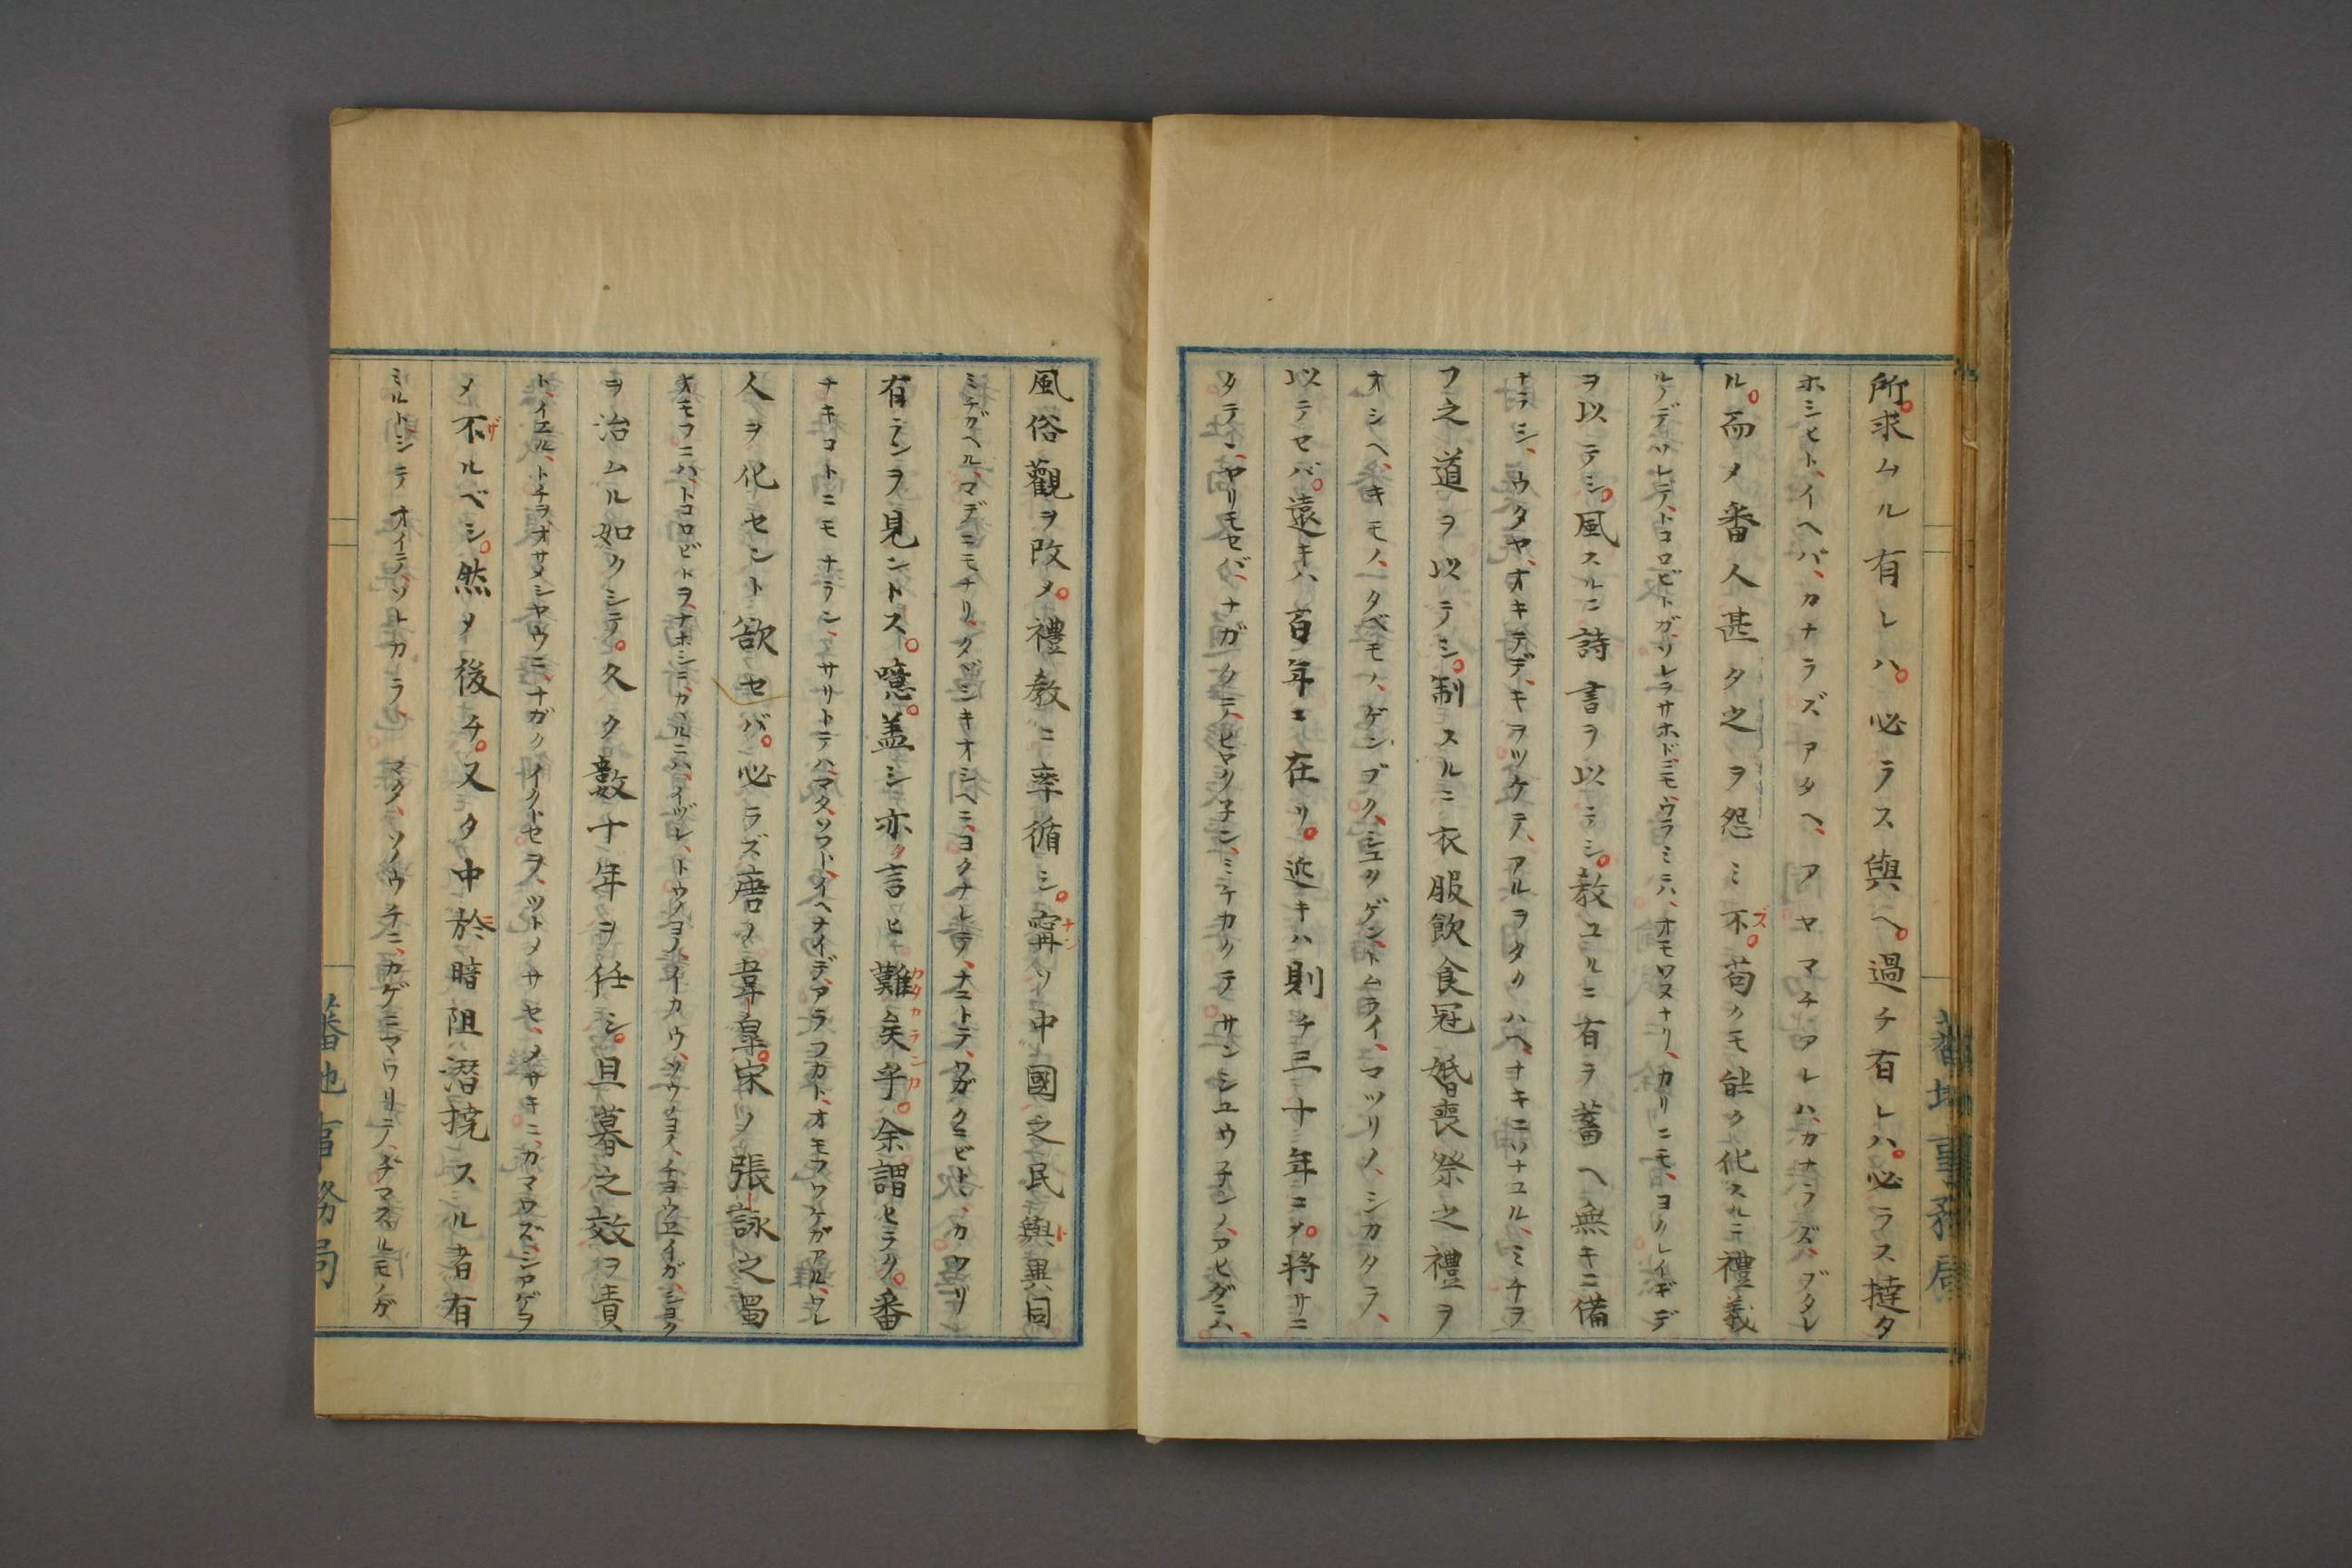 所求ムル有レハ。必ラス與ヘ。過チ有レハ。必ラス撻タ
ホシヒト、イヘバ、カナラズアタヘ、アヤマチアレハ、カナラズ、ブタレ
ル。而メ番人甚タ之ヲ怨ミ不ズ。苟クモ能ク化スルニ禮義
ルノデソレデ、トコロビトガ、ソレラサホドニモ、ウラミニハ、オモワヌナリ、カリニモ、ヨクレイギデ
ヲ以テシ。風スルニ詩書ヲ以テシ。教ユルニ有ヲ蓄ヘ無キニ備
ナラシ、ウタヤ、オキテデ、キヲツケテ、アルヲタクハヘ、ナキニソナユル、ミチヲ
フ之道ヲ以テシ。制スルニ衣服飲食冠婚喪祭之禮ヲ
オシヘ、キモノ、タベモノ、ゲンブク、シユウゲン、トムライ、マツリノ、シカタヲ、
以テセバ。遠キハ百年ニ在リ。近キハ則チ三十年ニメ。將サニ
タテニ、ヤリモセバ、ナガクテ、ヒヤクネン、ミヂカクテ、サンジユウネンノ、アヒダニハ、
風俗觀ヲ改メ。禮教ニ率循シ。寗ナンソ中國之民與ト異同
ミチガヘル、マデニモナリ、タヾシキオシヘニ、ヨクナレテ、ナニトテ、ワガクニビト、カワリ
有ランヲ見ントス。噫。盖シ亦ク言ヒ難カタ矣カラン乎カ。余謂ヒラク。番
ナキコトニモナラン、サリトテハ、マタ、ソウト、イヘナイデ、アラフカト、オモフワケガアル、ワレ
人ヲ化セント欲セバ。必ラズ唐ノ韋皐。宋ノ張詠之蜀
オモフニハ、トコロビトヲ、ナホシニ、カヽルニハ、イヅレ、トウノヨノ、イカウ、ソウノヨノ、チヨウエイガ、シヨク
ヲ治ムル如クシテ。久ク數十年ヲ任シ。旦暮之效ヲ責
ト、イエル、トチヲ、オサメシヤウニ、ナガク、イクトセヲ、ツトメサセ、メサキニ、カマワズ、シアゲヲ
メ不ザルベシ。然タ後チ。又タ中於ニ暗阻潜撓スル者有
ミルト、シテオイテ、ソレカラ、マタ、ソノウチニ、カゲニマワリテ、ヂマスルモノガ
蕃地事務局
蕃地事務局